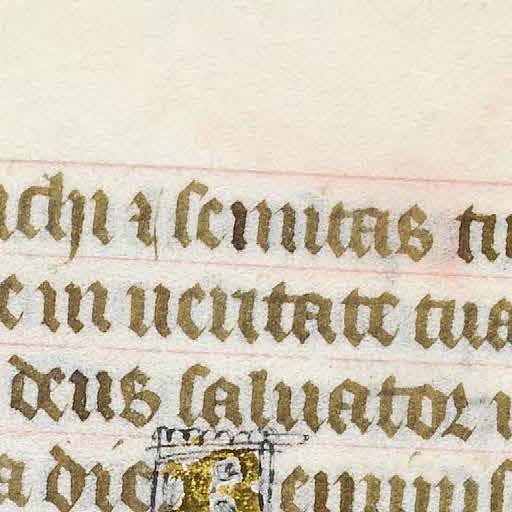 ichi ⁊ semitas tu
e in ueritate tua
deus saluator
a die Reminis